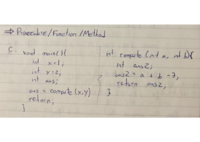 ⇒ Procedure/Function/Method
C void main() {
int x=1;
int y=2;
int ans;
ans = compute(x,y)
return;
}
int compute(int a, int b){
int ans2;
ans2 = a + b
return ans2;
}